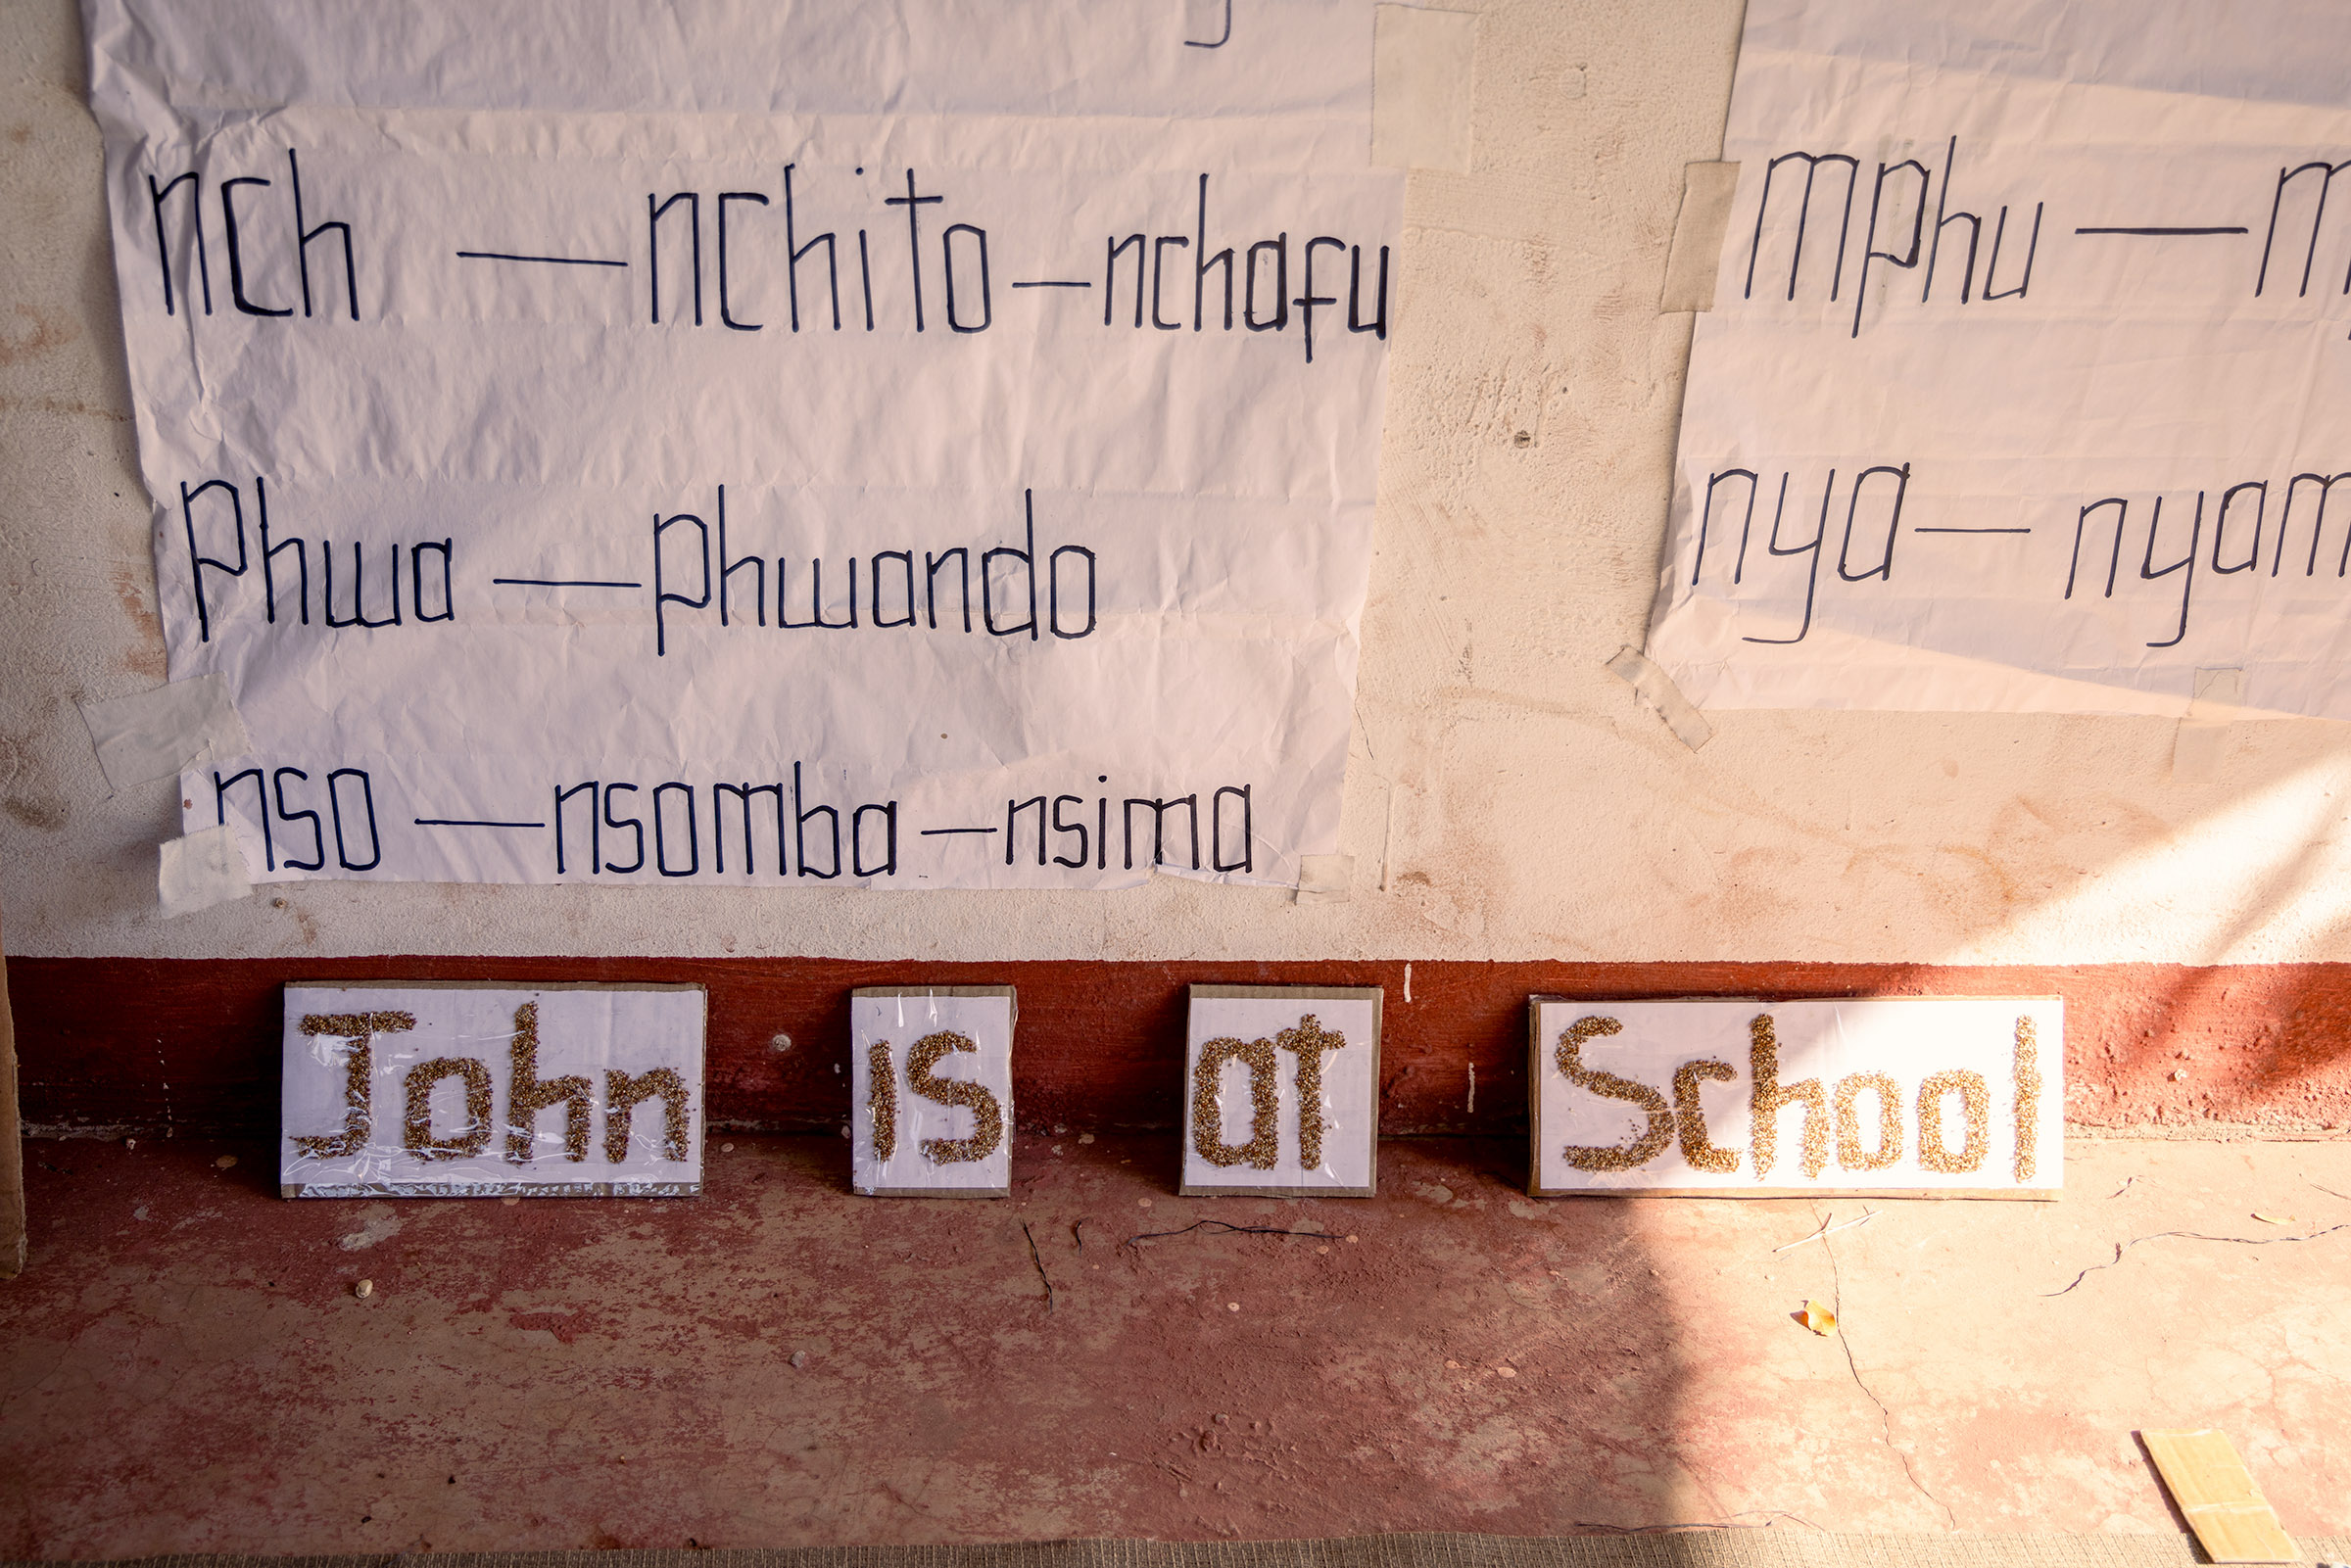 nch — nchito — nchafu
Phwa — phwando
nso — nsomba — nsima
mphu —
nya —
John is at School